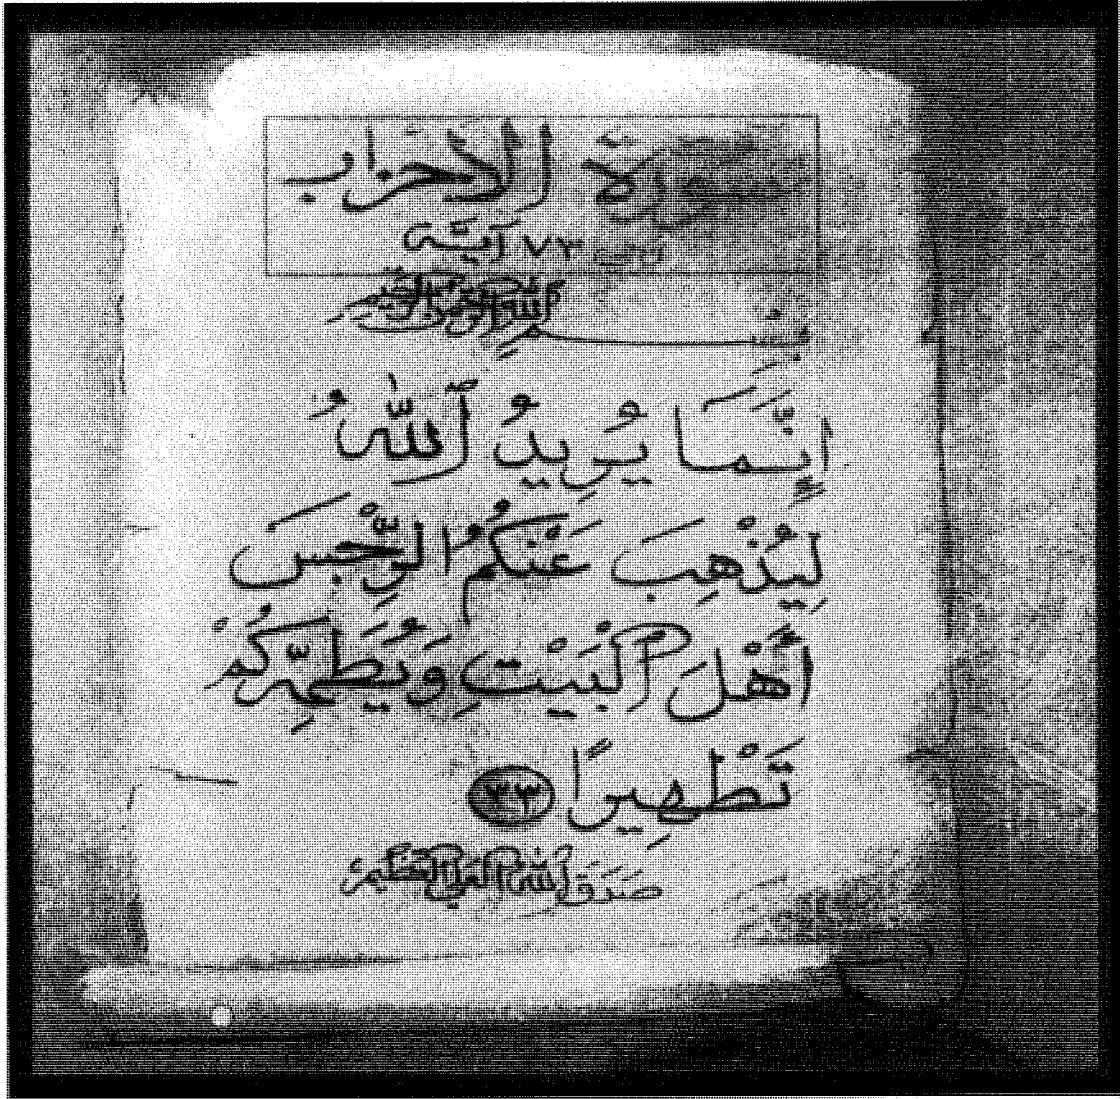 سورة الأحزاب
٧٣ آية
بسم الله الرحمن الرحيم
إِنَّمَا يُرِيدُ ٱللَّهُ
لِيُذْهِبَ عَنْكُمُ الرِّجْسَ
أَهْلَ ٱلْبَيْتِ وَيُطَهِّرَكُمْ
تَطْهِيرًا ٣٣
صَدَقَ ٱللَّهُ ٱلْعَلِيُّ ٱلْعَظِيمُ